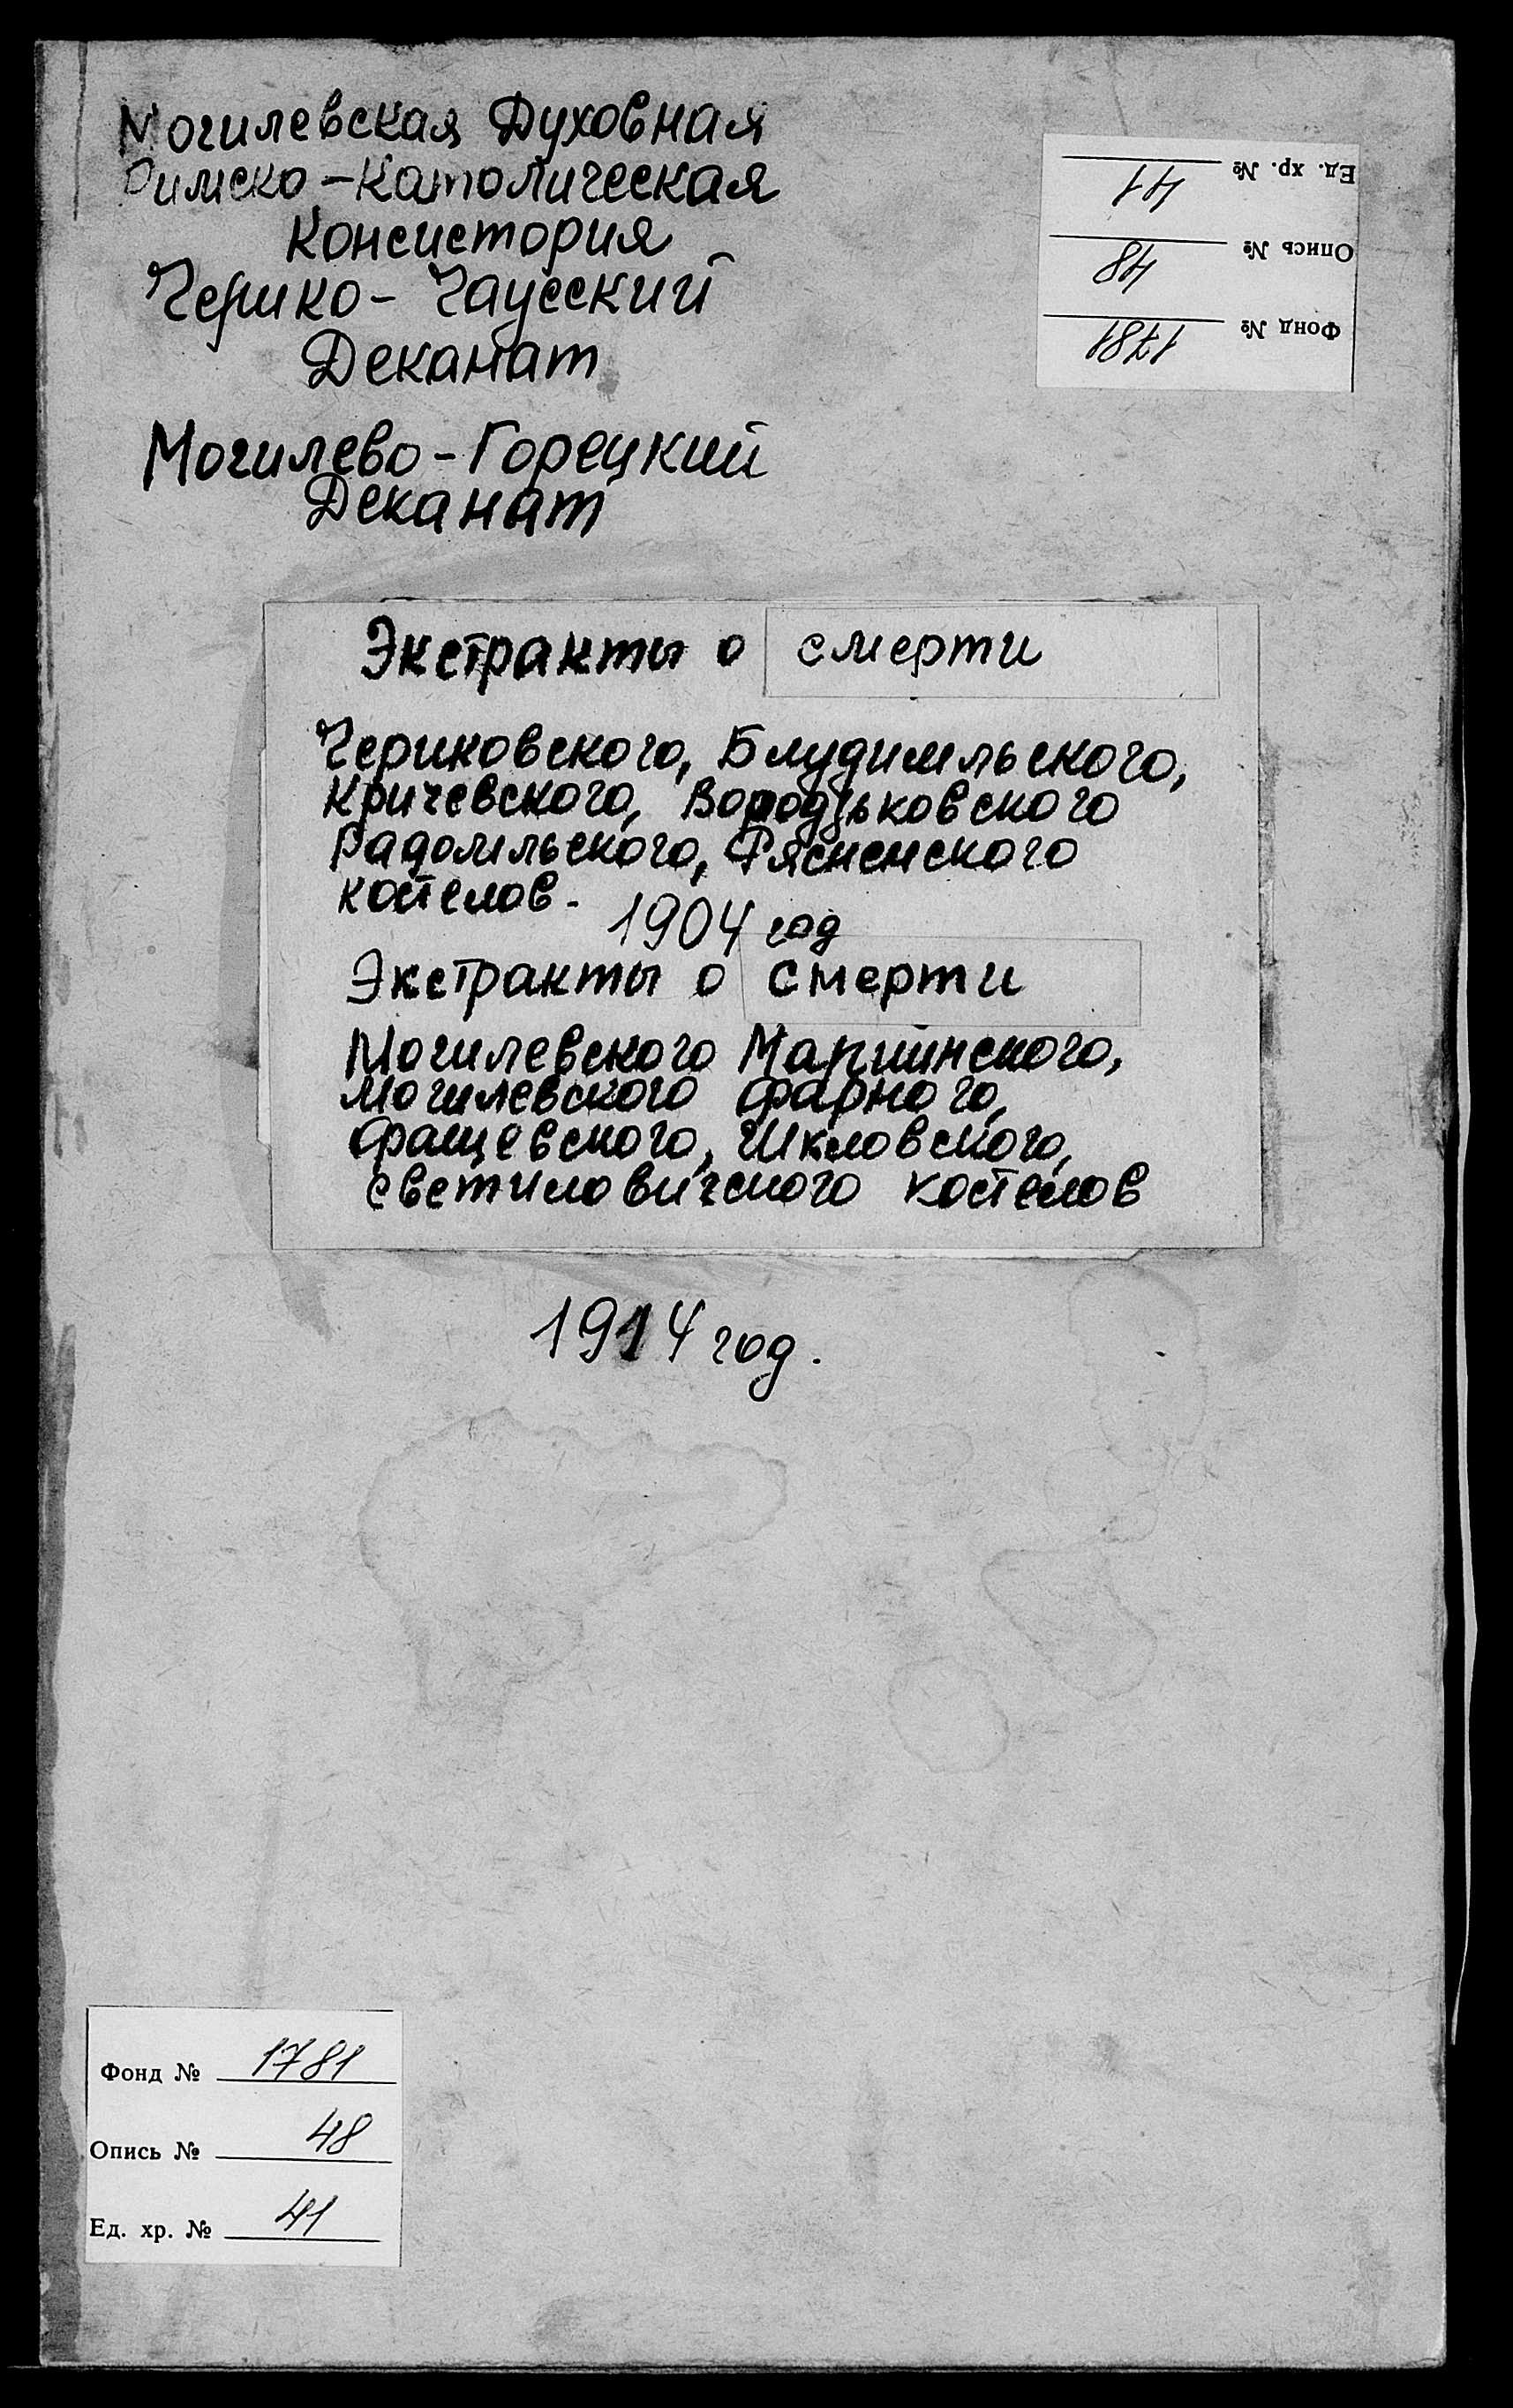 Могилевская Духовная
Римско-Католическая
Консистория
Черико-Чаусский
Деканат
Могилево-Горецкий
Деканат
Ед. хр. № 41
Опись № 48
Фонд № 1781
Экстракты о смерти
Чериковского, Блудимльского,
Кричевского, Вороdзьковского
Радомльского, Рясненского
костелов.
1904 год
Экстракты о смерти
Могилевского Мариинского,
Могилевского фарного,
Фащевского, Шкловского,
Светиловичского костелов
1914 год.
Фонд № 1781
Опись № 48
Ед. хр. № 41